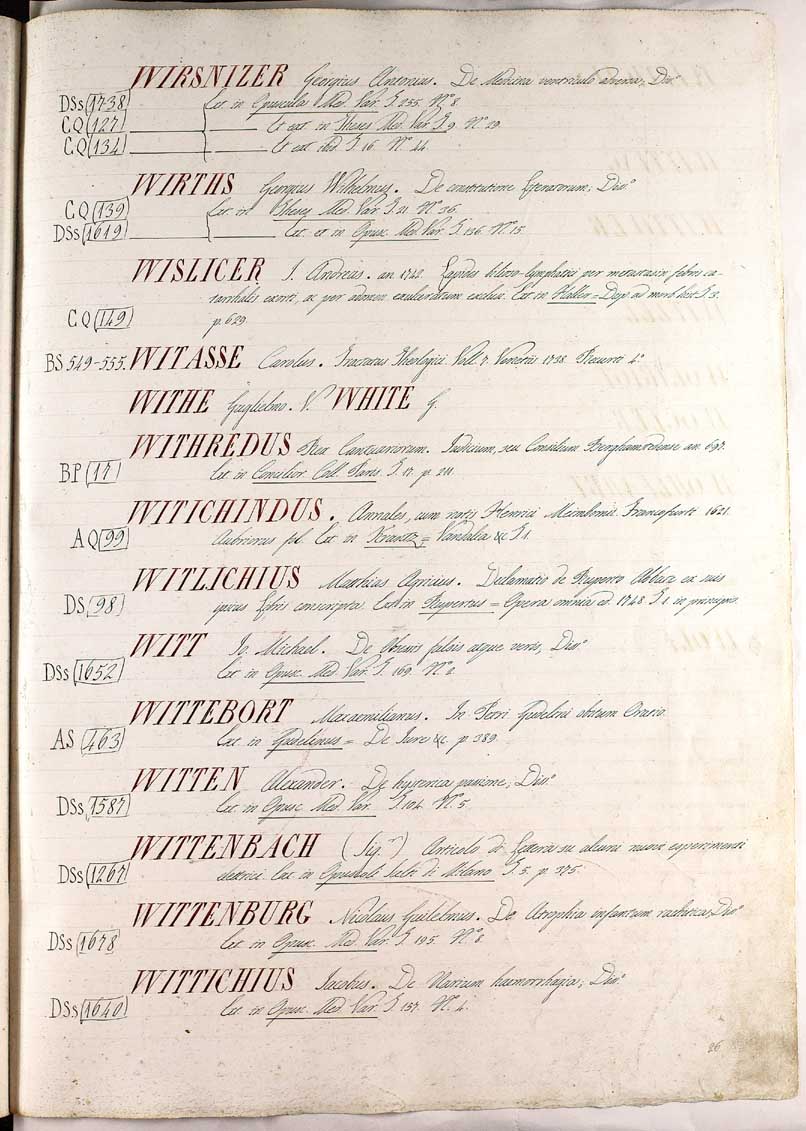 WIRSNIZER Georgius Antonius. De Medicina ventriculo adversa, Diss.º
DSs (1738) Ext. in Opuscula Med. Var. T. 235. N.º 8.
CQ (127) Et ext. in Theses Med. Var. T. 9. N.º 29.
CQ (134) Et ext. ibid T. 16. N.º 24.
WIRTHS Georgius Wilhelmus. De constitutione Diss.º
CQ (139) Ext. in Theses Med. Var. T. 21. N.º 36.
DSs (1619) Ext. et in Opusc. Med. Var. T. 136. N.º 15.
WISLICER I. Andreas. an. 1742. Lapides bilioso-lymphatici per metastasin febris ca-
tarrhalis exorti, ac per abdomen exulceratum exclusi. Ext. in Haller = Disp. ad morb. hist. T. 3.
CQ (149) p. 629.
BS 549-555. WITASSE Carolus. Tractatus Theologici. Voll. 7. Venetiis 1738. Pecurti 4.º
WITHE Guglielmo. V. WHITE G.
WITHREDUS Rex Cantuariorum. Judicium, seu Consilium Berghamstedense an. 697.
BP (17) Ext. in Concilior. Coll. Paris. T. 17. p. 211.
WITICHINDUS. Annales, cum notis Henrici Meinbomii. Francofurti 1621.
AQ (99) fol. Ext. in Krantz = Vandalia &c. T. 1.
WITLICHIUS Matthias Agricius. Declamatio de Ruperto Abbate ex suis
DS (98) ipsius libris conscripta. Ext. in Rupertus = Opera omnia ed. 1748. T. 1. in principio.
WITT Io. Michael. De falsis atque veris, Diss.º
DSs (1652) Ext. in Opusc. Med. Var. T. 169. N.º 2.
WITTEBORT Maxaemilianus. In Petri Gudelini obitum Oratio.
AS (463) Ext. in Gudelinus = De Jure &c. p. 389.
WITTEN Alexander. De hysterica passione, Diss.º
DSs (1587) Ext. in Opusc. Med. Var. T. 104. N.º 5.
WITTENBACH (Sig.ʳ) Articolo di Lettera su alcuni nuovi esperimenti
DSs (1267) elettrici. Ext. in Opuscoli Scelti di Milano T. 5. p. 375.
WITTENBURG Nicolaus Guilelmus. De Atrophia infantum rachitica, Diss.º
DSs (1678) Ext. in Opusc. Med. Var. T. 195. N.º 8.
WITTICHIUS Jacobus. De Narium haemorrhagia, Diss.º
DSs (1640) Ext. in Opusc. Med. Var. T. 157. N.º 4.
26